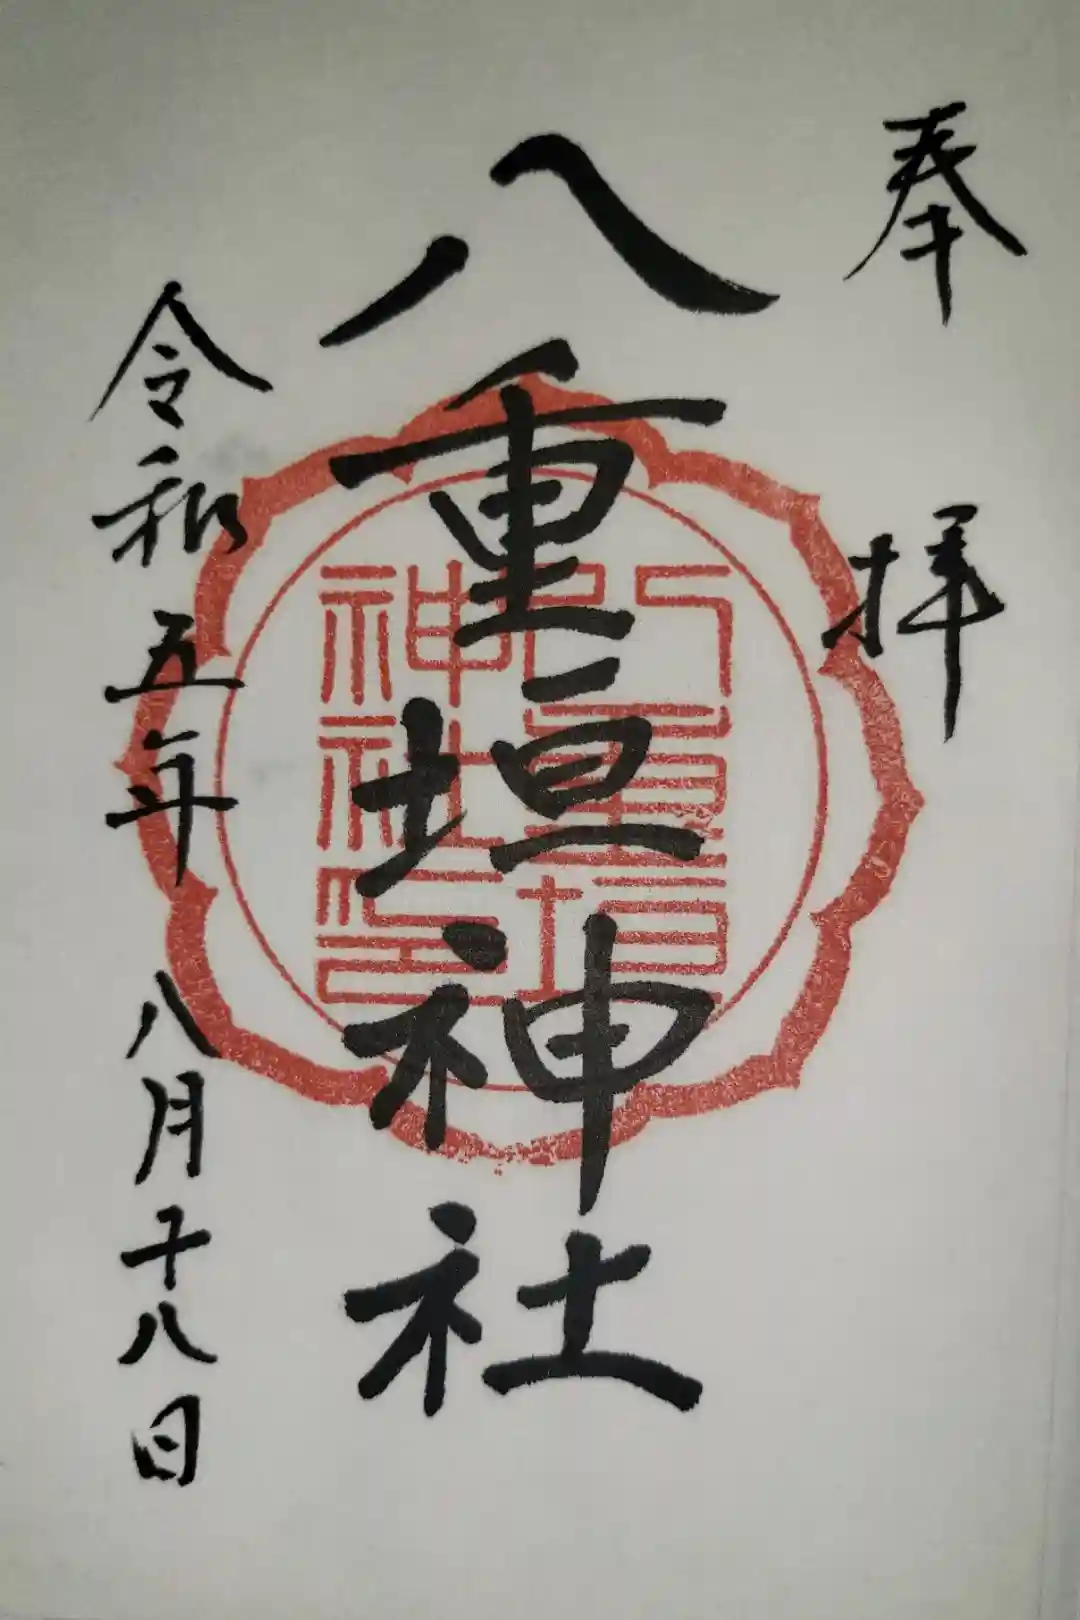 奉拝
八重垣神社
八重垣
神社印
令和五年八月十八日